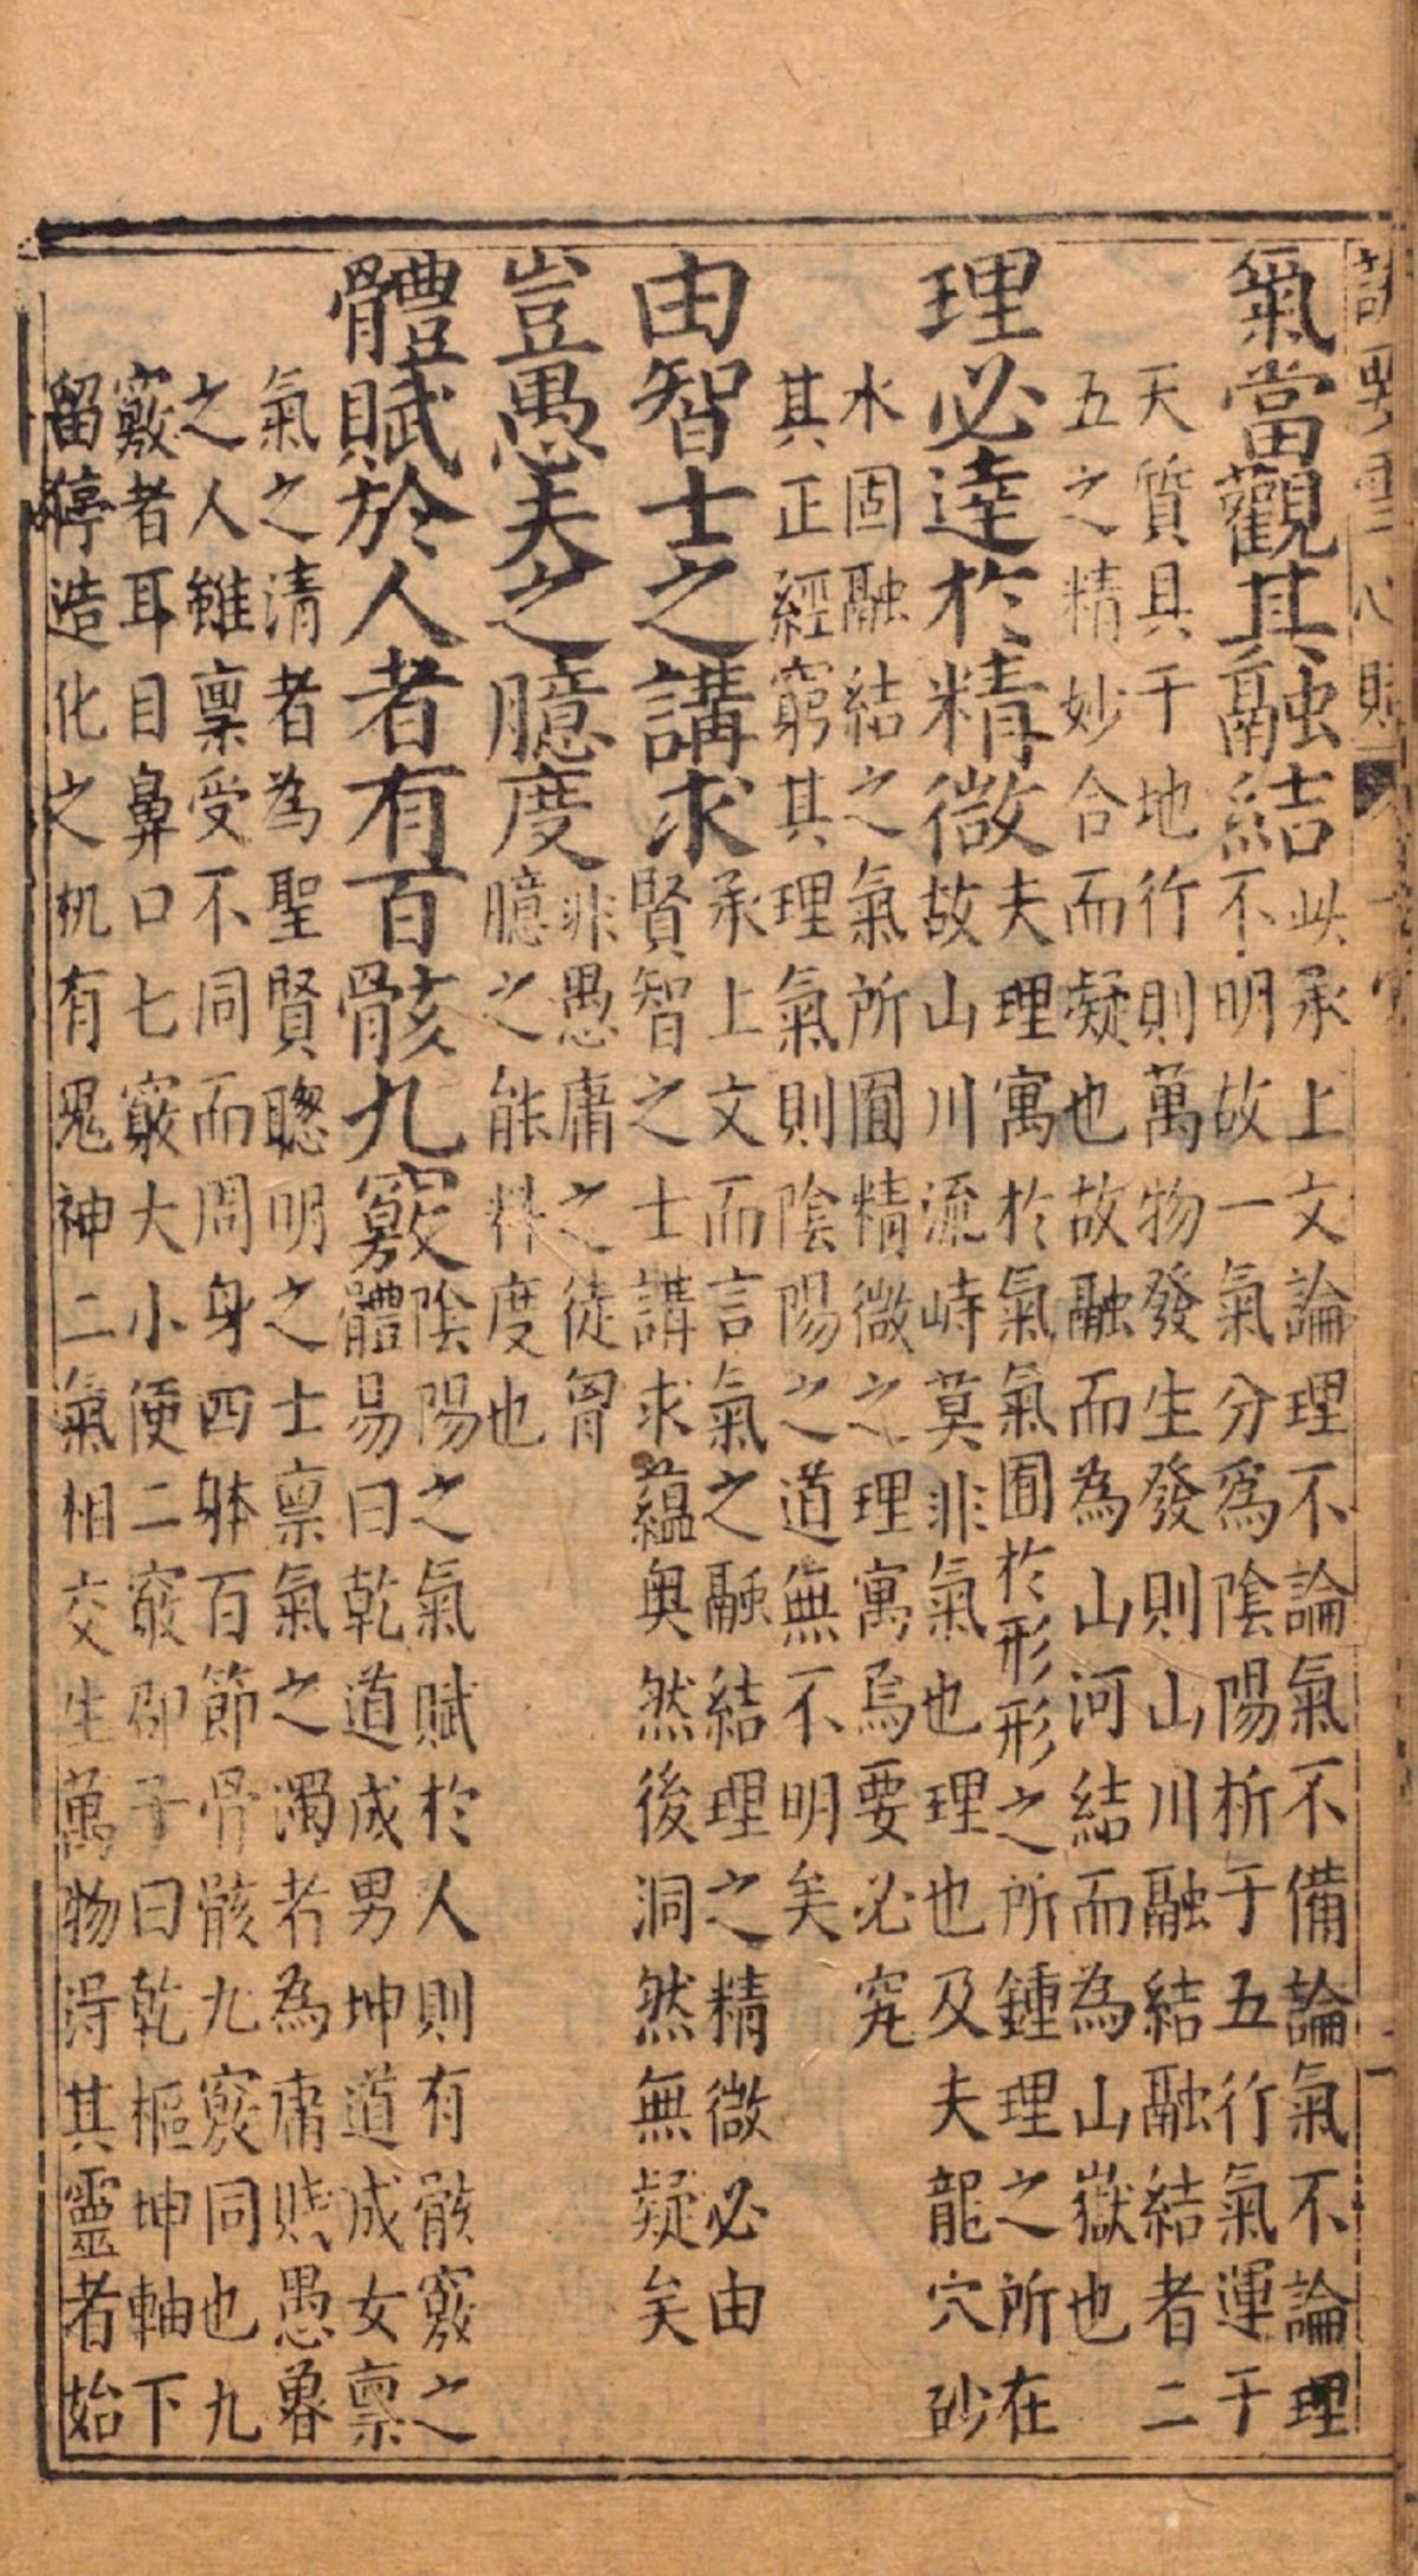 氣當觀其融結此承上文論理不論氣不備論氣不論理
不明故一氣分爲陰陽析于五行氣運于
天質具于地行則萬物發生發則山川融結融結者二
五之精妙合而凝也故融而為山河結而為山嶽也
理必達於精微夫理寓於氣氣囿於形形之所鍾理之所在
故山川流峙莫非氣也理也及夫龍穴砂
水固融結之氣所囿精微之理寓焉要必究
其正經窮其理氣則陰陽之道無不明矣
由智士之講求承上文而言氣之融結理之精微必由
賢智之士講求蘊奥然後洞然無疑矣
豈愚夫之臆度非愚庸之徒胷
臆之能料度也
體賦於人者有百骸九竅陰陽之氣賦於人則有骸竅之
體易曰乾道成男坤道成女禀
氣之清者為聖賢聰明之士禀氣之濁者為庸賤愚魯
之人雖禀受不同而周身四躰百節骨骸九竅同也九
竅者耳目鼻口七竅大小便二竅邵子曰乾樞坤軸下
留停造化之机有鬼神二氣相交生萬物得其靈者始